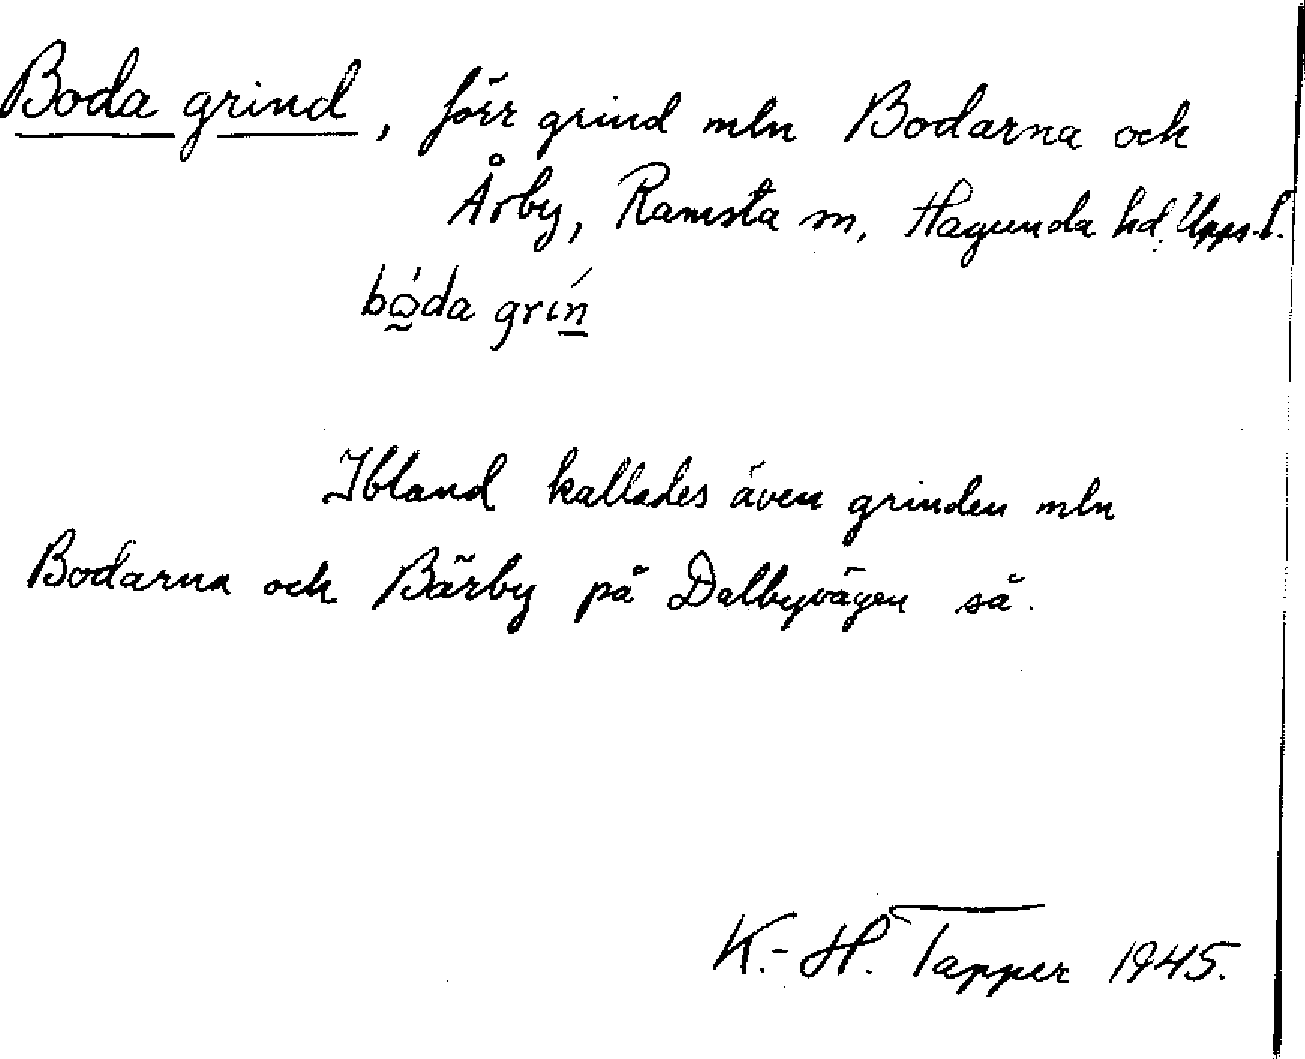 Boda grind, förr grind mln Bodarna och
Årby, Ramsta sn, Hagunda hd. Upps. l.
bo̰da grin̲
Ibland kallades även grinden mln
Bodarna och Bärby på Dalbyvägen så.
K.-H. Tapper 1945.